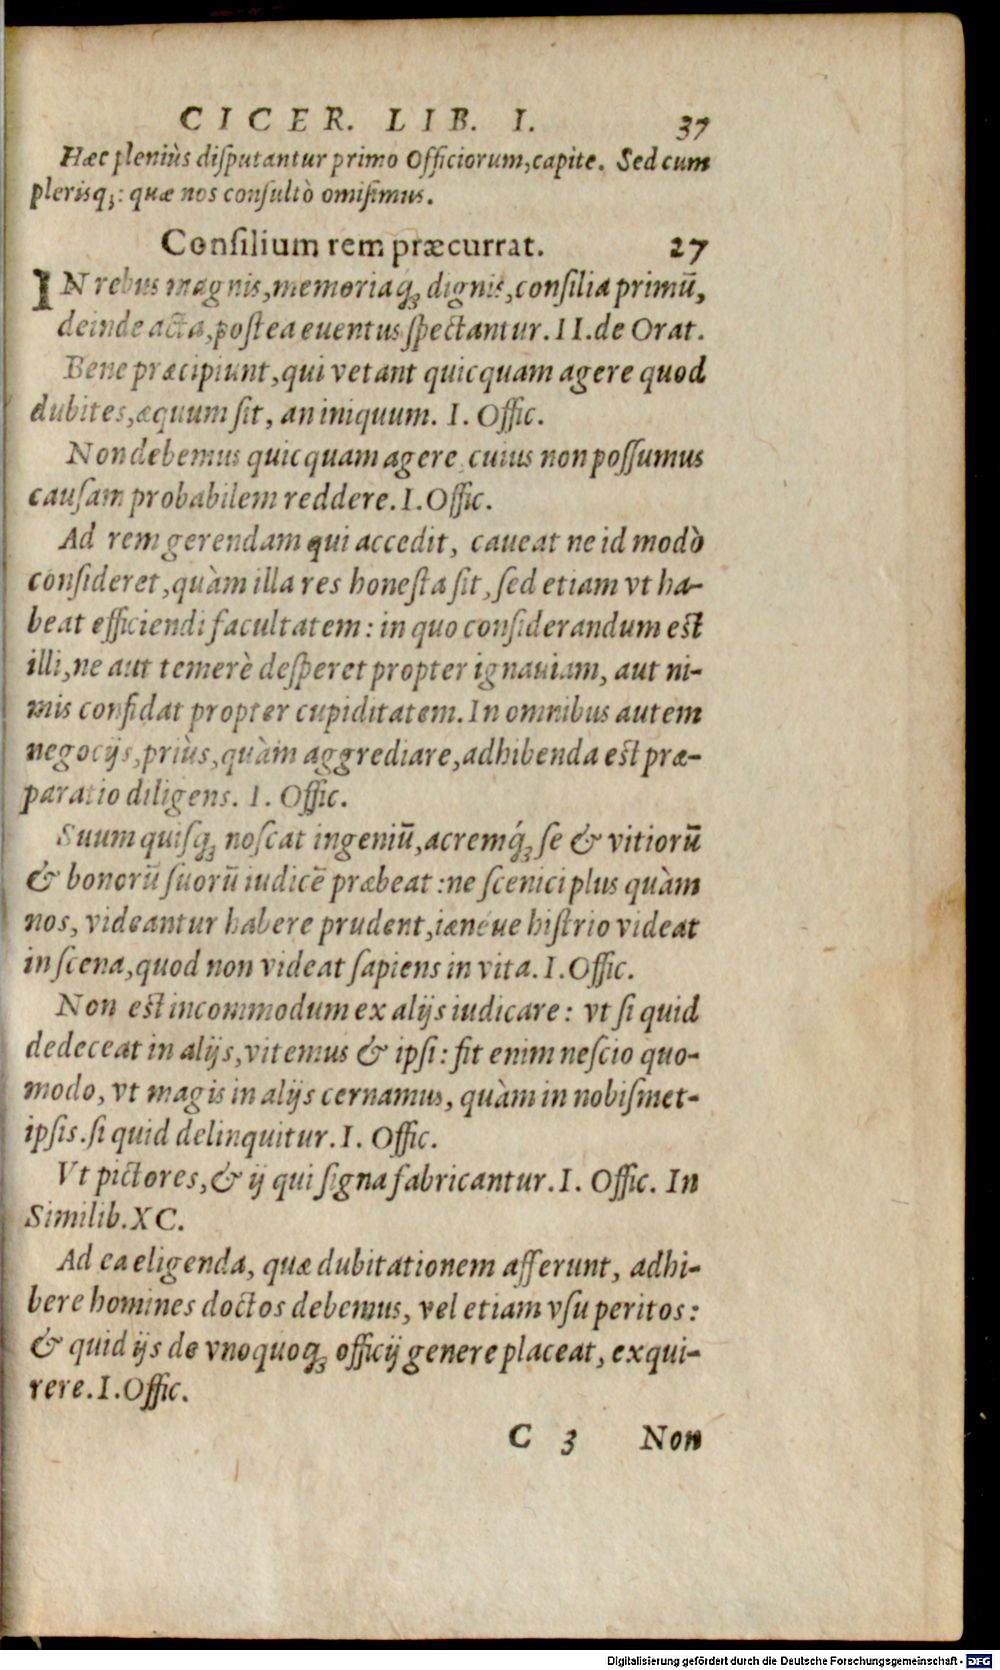 CICER. LIB. I. 37
Hæc pleniùs diſputantur primo Officiorum, capite. Sed cum
pleriſq;: quæ nos conſultò omiſimus.
Conſilium rem præcurrat. 27
IN rebus magnis, memoriaq́; dignis, conſilia primū,
deinde acta, poſtea euentus ſpectantur. II. de Orat.
Bene præcipiunt, qui vetant quicquam agere quod
dubites, æquum ſit, an iniquum. I. Offic.
Non debemus quicquam agere cuius non poſſumus
cauſam probabilem reddere. I. Offic.
Ad rem gerendam qui accedit, caueat ne id modò
conſideret, quàm illa res honeſta ſit, ſed etiam vt ha-
beat efficiendi facultatem: in quo conſiderandum eſt
illi, ne aut temerè deſperet propter ignauiam, aut ni-
mis confidat propter cupiditatem. In omnibus autem
negocijs, priùs, quàm aggrediare, adhibenda eſt præ-
paratio diligens. I. Offic.
Suum quiſq; noſcat ingeniū, acremq́; ſe & vitiorū
& bonorū ſuorū iudicē præbeat: ne ſcenici plus quàm
nos, videantur habere prudent, iæneue hiſtrio videat
in ſcena, quod non videat ſapiens in vita. I. Offic.
Non eſt incommodum ex alijs iudicare: vt ſi quid
dedeceat in alijs, vitemus & ipſi: fit enim neſcio quo-
modo, vt magis in alijs cernamus, quàm in nobiſmet-
ipſis. ſi quid delinquitur. I. Offic.
Vt pictores, & ij qui ſigna fabricantur. I. Offic. In
Similib. XC.
Ad ea eligenda, quæ dubitationem afferunt, adhi-
bere homines doctos debemus, vel etiam vſu peritos:
& quid ijs de vnoquoq; officij genere placeat, exqui-
rere. I. Offic.
C 3 Non
Digitalisierung gefördert durch die Deutsche Forschungsgemeinschaft - DFG